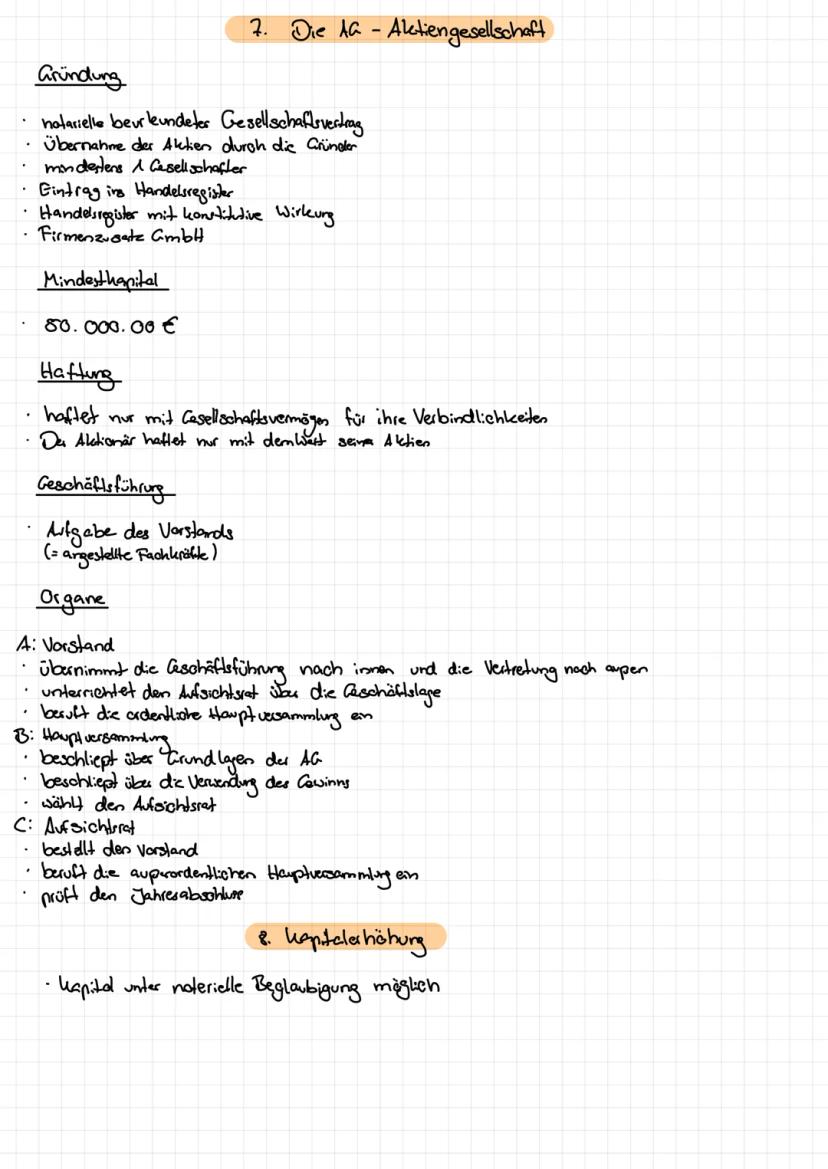 7. Die AG - Aktiengesellschaft
Gründung
· notarielle beurkundeter Gesellschaftsvertrag
· Übernahme der Aktien durch die Gründer
· mindestens 1 Gesellschafter
· Eintrag ins Handelsregister
· Handelsregister mit konstitutive Wirkung
· Firmenzusatz GmbH
Mindestkapital
· 50.000.00 €
Haftung
· haftet nur mit Gesellschaftsvermögen für ihre Verbindlichkeiten
· Der Aktionär haftet nur mit dem Wert seine Aktien
Geschäftsführung
· Aufgabe des Vorstands
(= angestellte Fachkräfte)
Organe
A: Vorstand
· übernimmt die Geschäftsführung nach innen und die Vertretung nach außen
· unterrichtet den Aufsichtsrat über die Geschäftslage
· beruft die ordentliche Hauptversammlung ein
B: Hauptversammlung
· beschließt über Grundlagen der AG
· beschließt über die Verwendung des Gewinns
· wählt den Aufsichtsrat
C: Aufsichtsrat
· bestellt den Vorstand
· beruft die außerordentlichen Hauptversammlung ein
· prüft den Jahresabschluss
8. Kapitalerhöhung
· Kapital unter noterielle Beglaubigung möglich